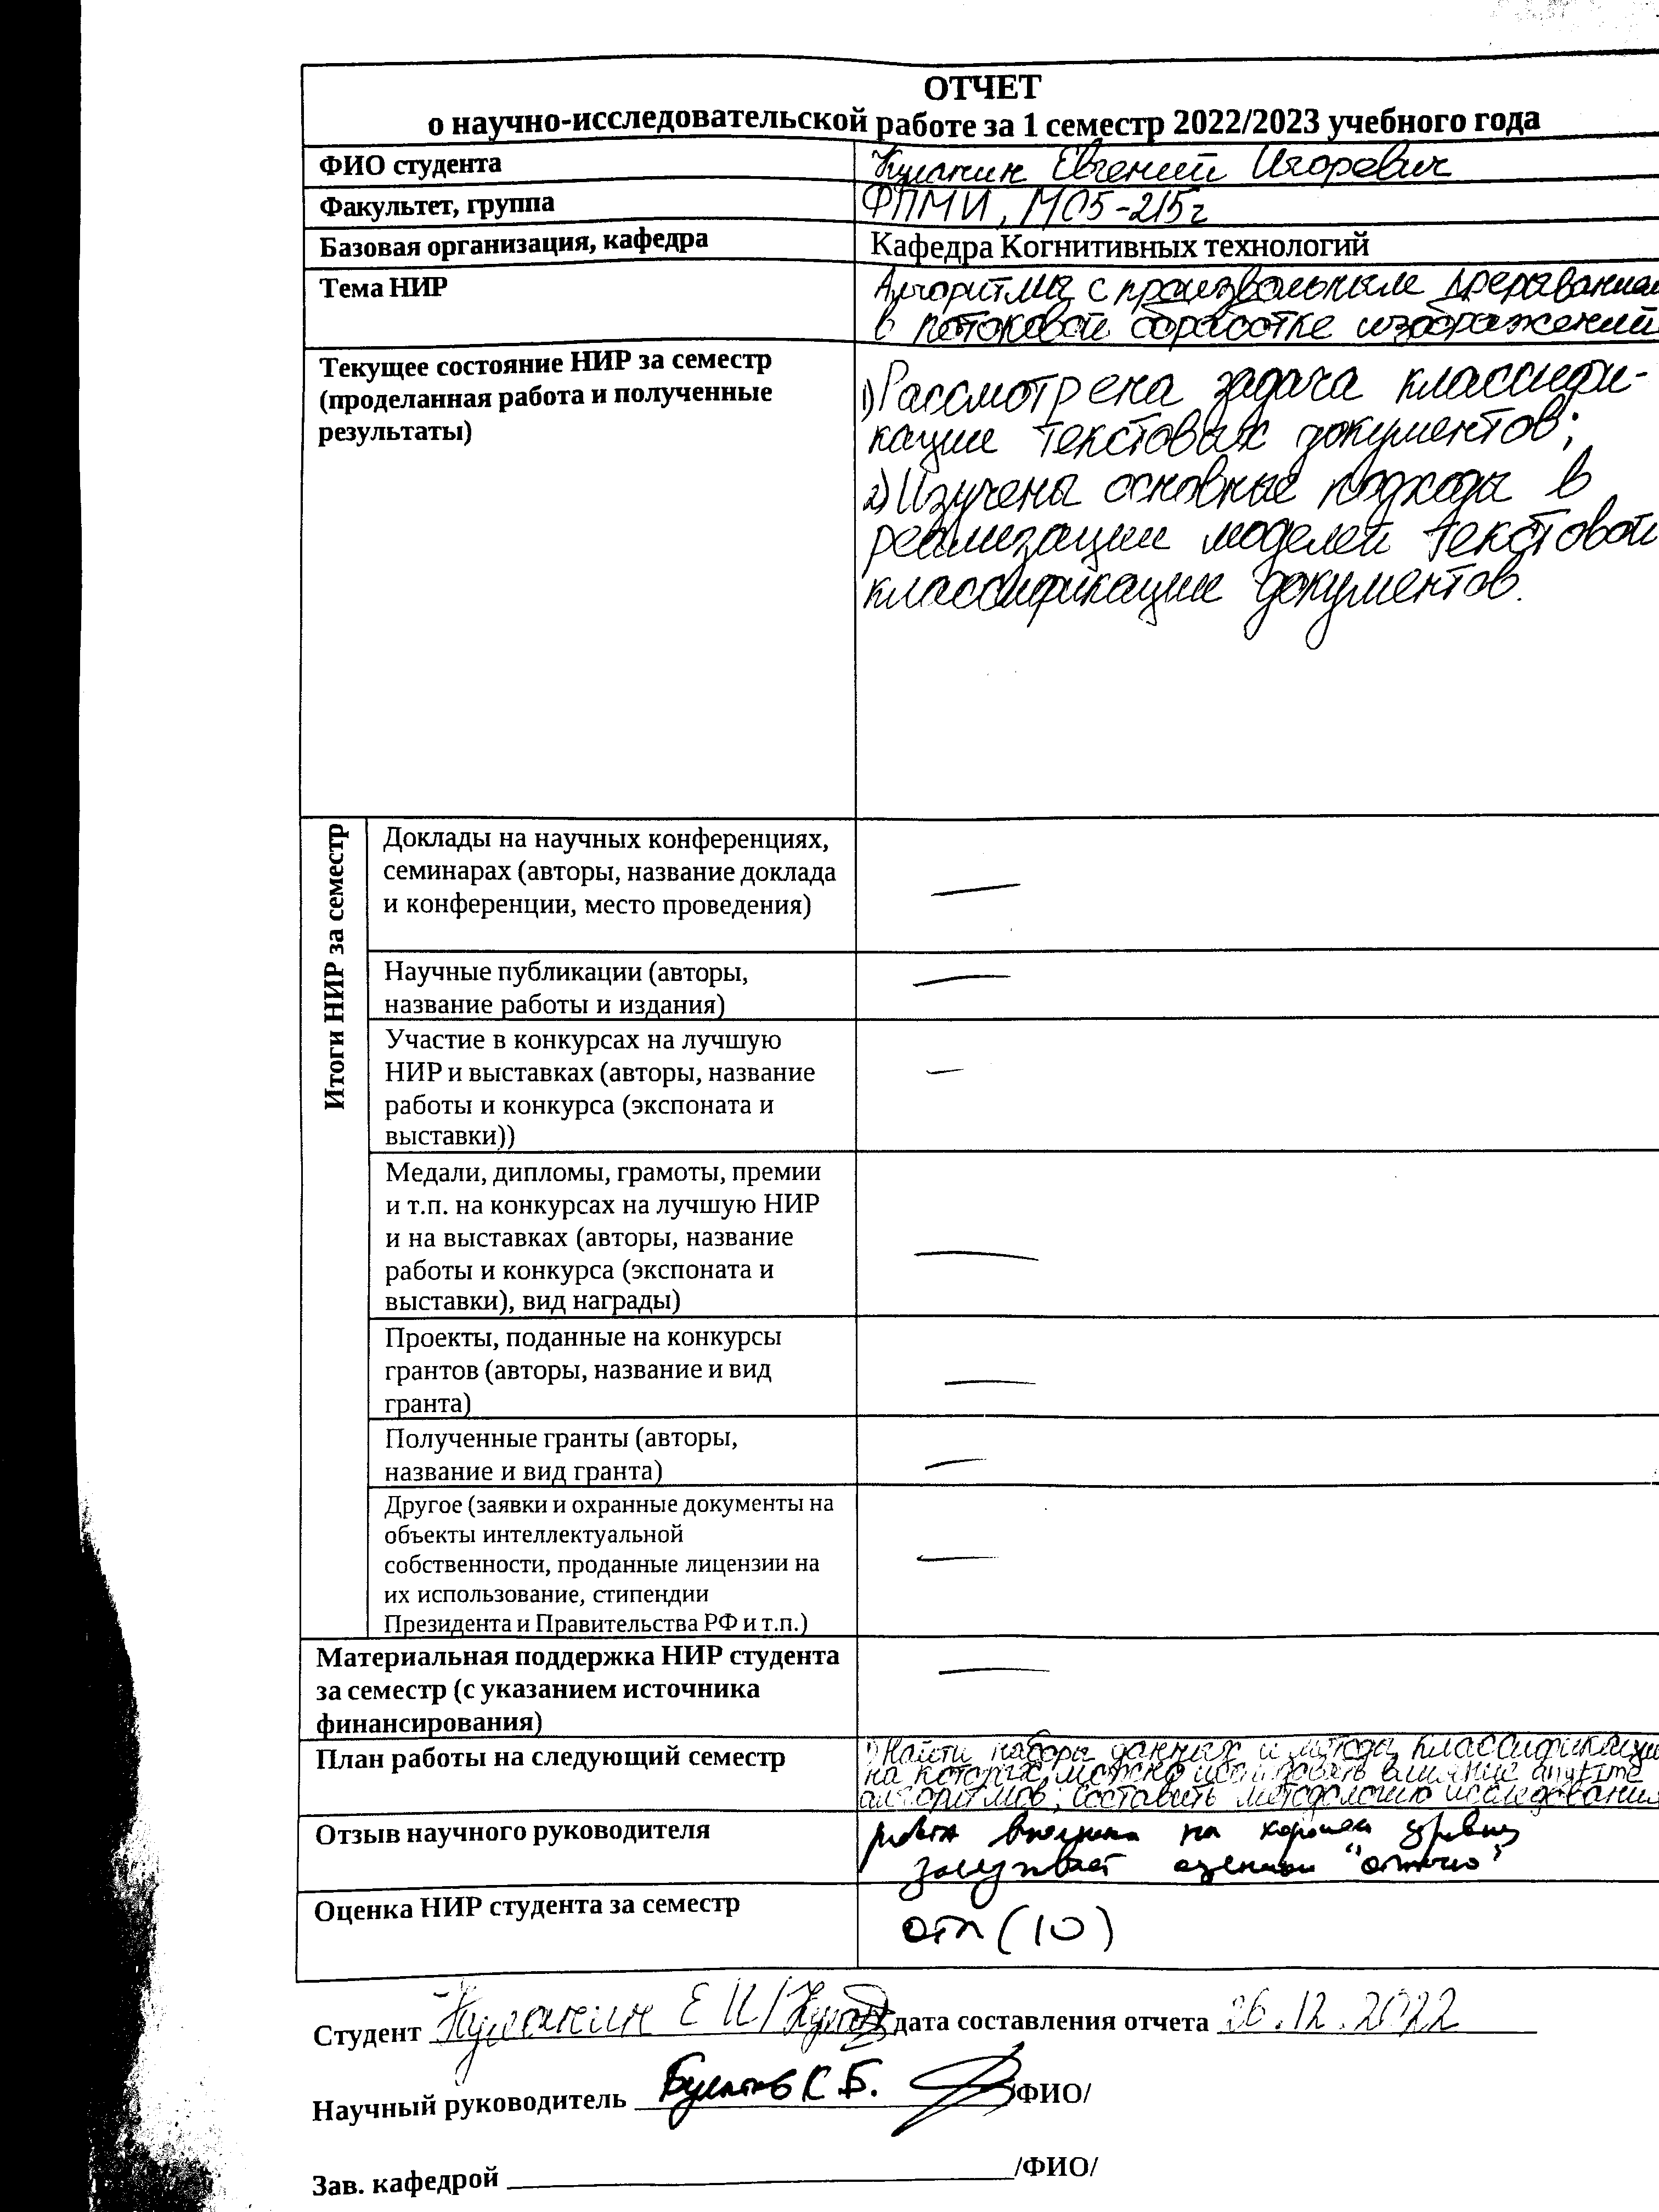 ОТЧЕТ
о научно-исследовательской работе за 1 семестр 2022/2023 учебного года
ФИО студента
Кулагин Евгений Игоревич
Факультет, группа
ФПМИ, М05-215г
Базовая организация, кафедра
Кафедра Когнитивных технологий
Тема НИР
Алгоритмы с произвольным прерыванием
в потоковой обработке изображений
Текущее состояние НИР за семестр
(проделанная работа и полученные
результаты)
1) Рассмотрена задача классифи-
кации текстовых документов;
2) Изучены основные подходы в
реализации моделей текстовой
классификации документов.
Итоги НИР за семестр
Доклады на научных конференциях,
семинарах (авторы, название доклада
и конференции, место проведения)
—
Научные публикации (авторы,
название работы и издания)
—
Участие в конкурсах на лучшую
НИР и выставках (авторы, название
работы и конкурса (экспоната и
выставки))
—
Медали, дипломы, грамоты, премии
и т.п. на конкурсах на лучшую НИР
и на выставках (авторы, название
работы и конкурса (экспоната и
выставки), вид награды)
—
Проекты, поданные на конкурсы
грантов (авторы, название и вид
гранта)
—
Полученные гранты (авторы,
название и вид гранта)
—
Другое (заявки и охранные документы на
объекты интеллектуальной
собственности, проданные лицензии на
их использование, стипендии
Президента и Правительства РФ и т.п.)
—
Материальная поддержка НИР студента
за семестр (с указанием источника
финансирования)
—
План работы на следующий семестр
1) Найти наборы данных и методы классификации
на которых можно исследовать влияние anytime
алгоритмов; составить методологию исследования
Отзыв научного руководителя
работа выполнена на хорошем уровне
заслуживает оценки "отлично"
Оценка НИР студента за семестр
отл (10)
Студент Е И/ дата составления отчета 26.12.2022
Научный руководитель Булатов К.Б. /ФИО/
Зав. кафедрой /ФИО/